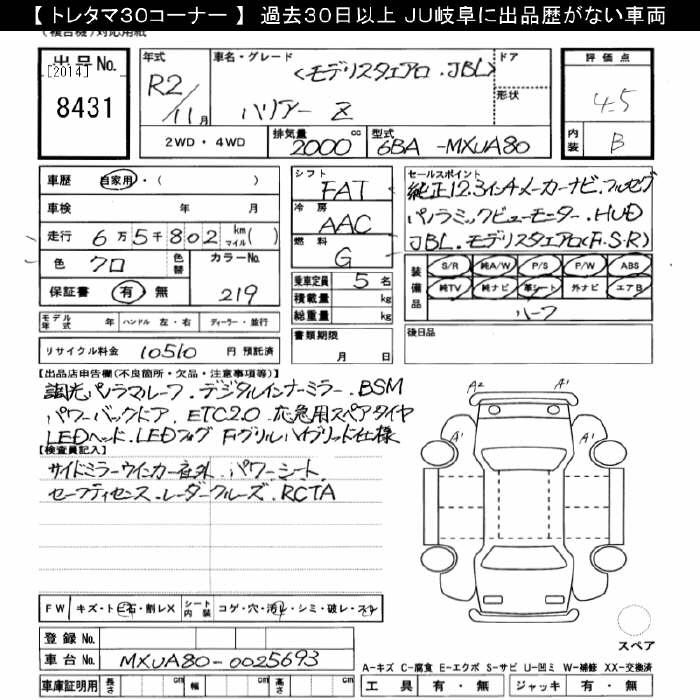 【 トレタマ30コーナー 】 過去30日以上 JU岐阜に出品歴がない車両
(複合機)対応用紙
出品No.
[2014]
8431
年式
R2/11月
車名・グレード
<モデリスタエアロ・JBL>
ハリアー Z
ドア
形状
評価点
4.5
内装
B
2WD・4WD
排気量
2000 cc
型式
6BA-MXUA80
車歴 自家用・( )
車検 年 月
走行 6万5千802 km マイル( )
色 クロ 色替 カラーNo.
保証書 有・無 219
シフト
FAT
冷房
AAC
燃料
G
乗車定員 5名
積載量 kg
総重量 kg
書類期限
月 日
セールスポイント
純正12.3インチメーカーナビ.フルセグ
パノラミックビューモニター.HUD
JBL.モデリスタエアロ(F.S.R)
装備品
S/R 純A/W P/S P/W ABS
純TV 純ナビ 革シート 外ナビ エアB
ハーフ
モデル年式 年 ハンドル 左・右 ディーラー・並行
リサイクル料金 10510 円 預託済
後日品
【出品店申告欄(不良箇所・欠品・注意事項等)】
調光パノラマルーフ.デジタルインナーミラー.BSM
パワーバックドア.ETC2.0 応急用スペアタイヤ
LEDヘッド.LEDフォグ Fグリルハイブリッド仕様
【検査員記入】
サイドミラーウインカー社外.パワーシート
セーフティセンス.レーダークルーズ.RCTA
A2 A1
A1 A1
FW キズ・トビ石・割レX シート内装 コゲ・穴・汚レ・シミ・破レ・スレ
登録No.
車台No. MXUA80-0025693
スペア
A-キズ C-腐食 E-エクボ S-サビ U-凹ミ W-補修 XX-交換済
車庫証明用 長さ cm 幅 cm 高さ cm 工具 有・無 ジャッキ 有・無